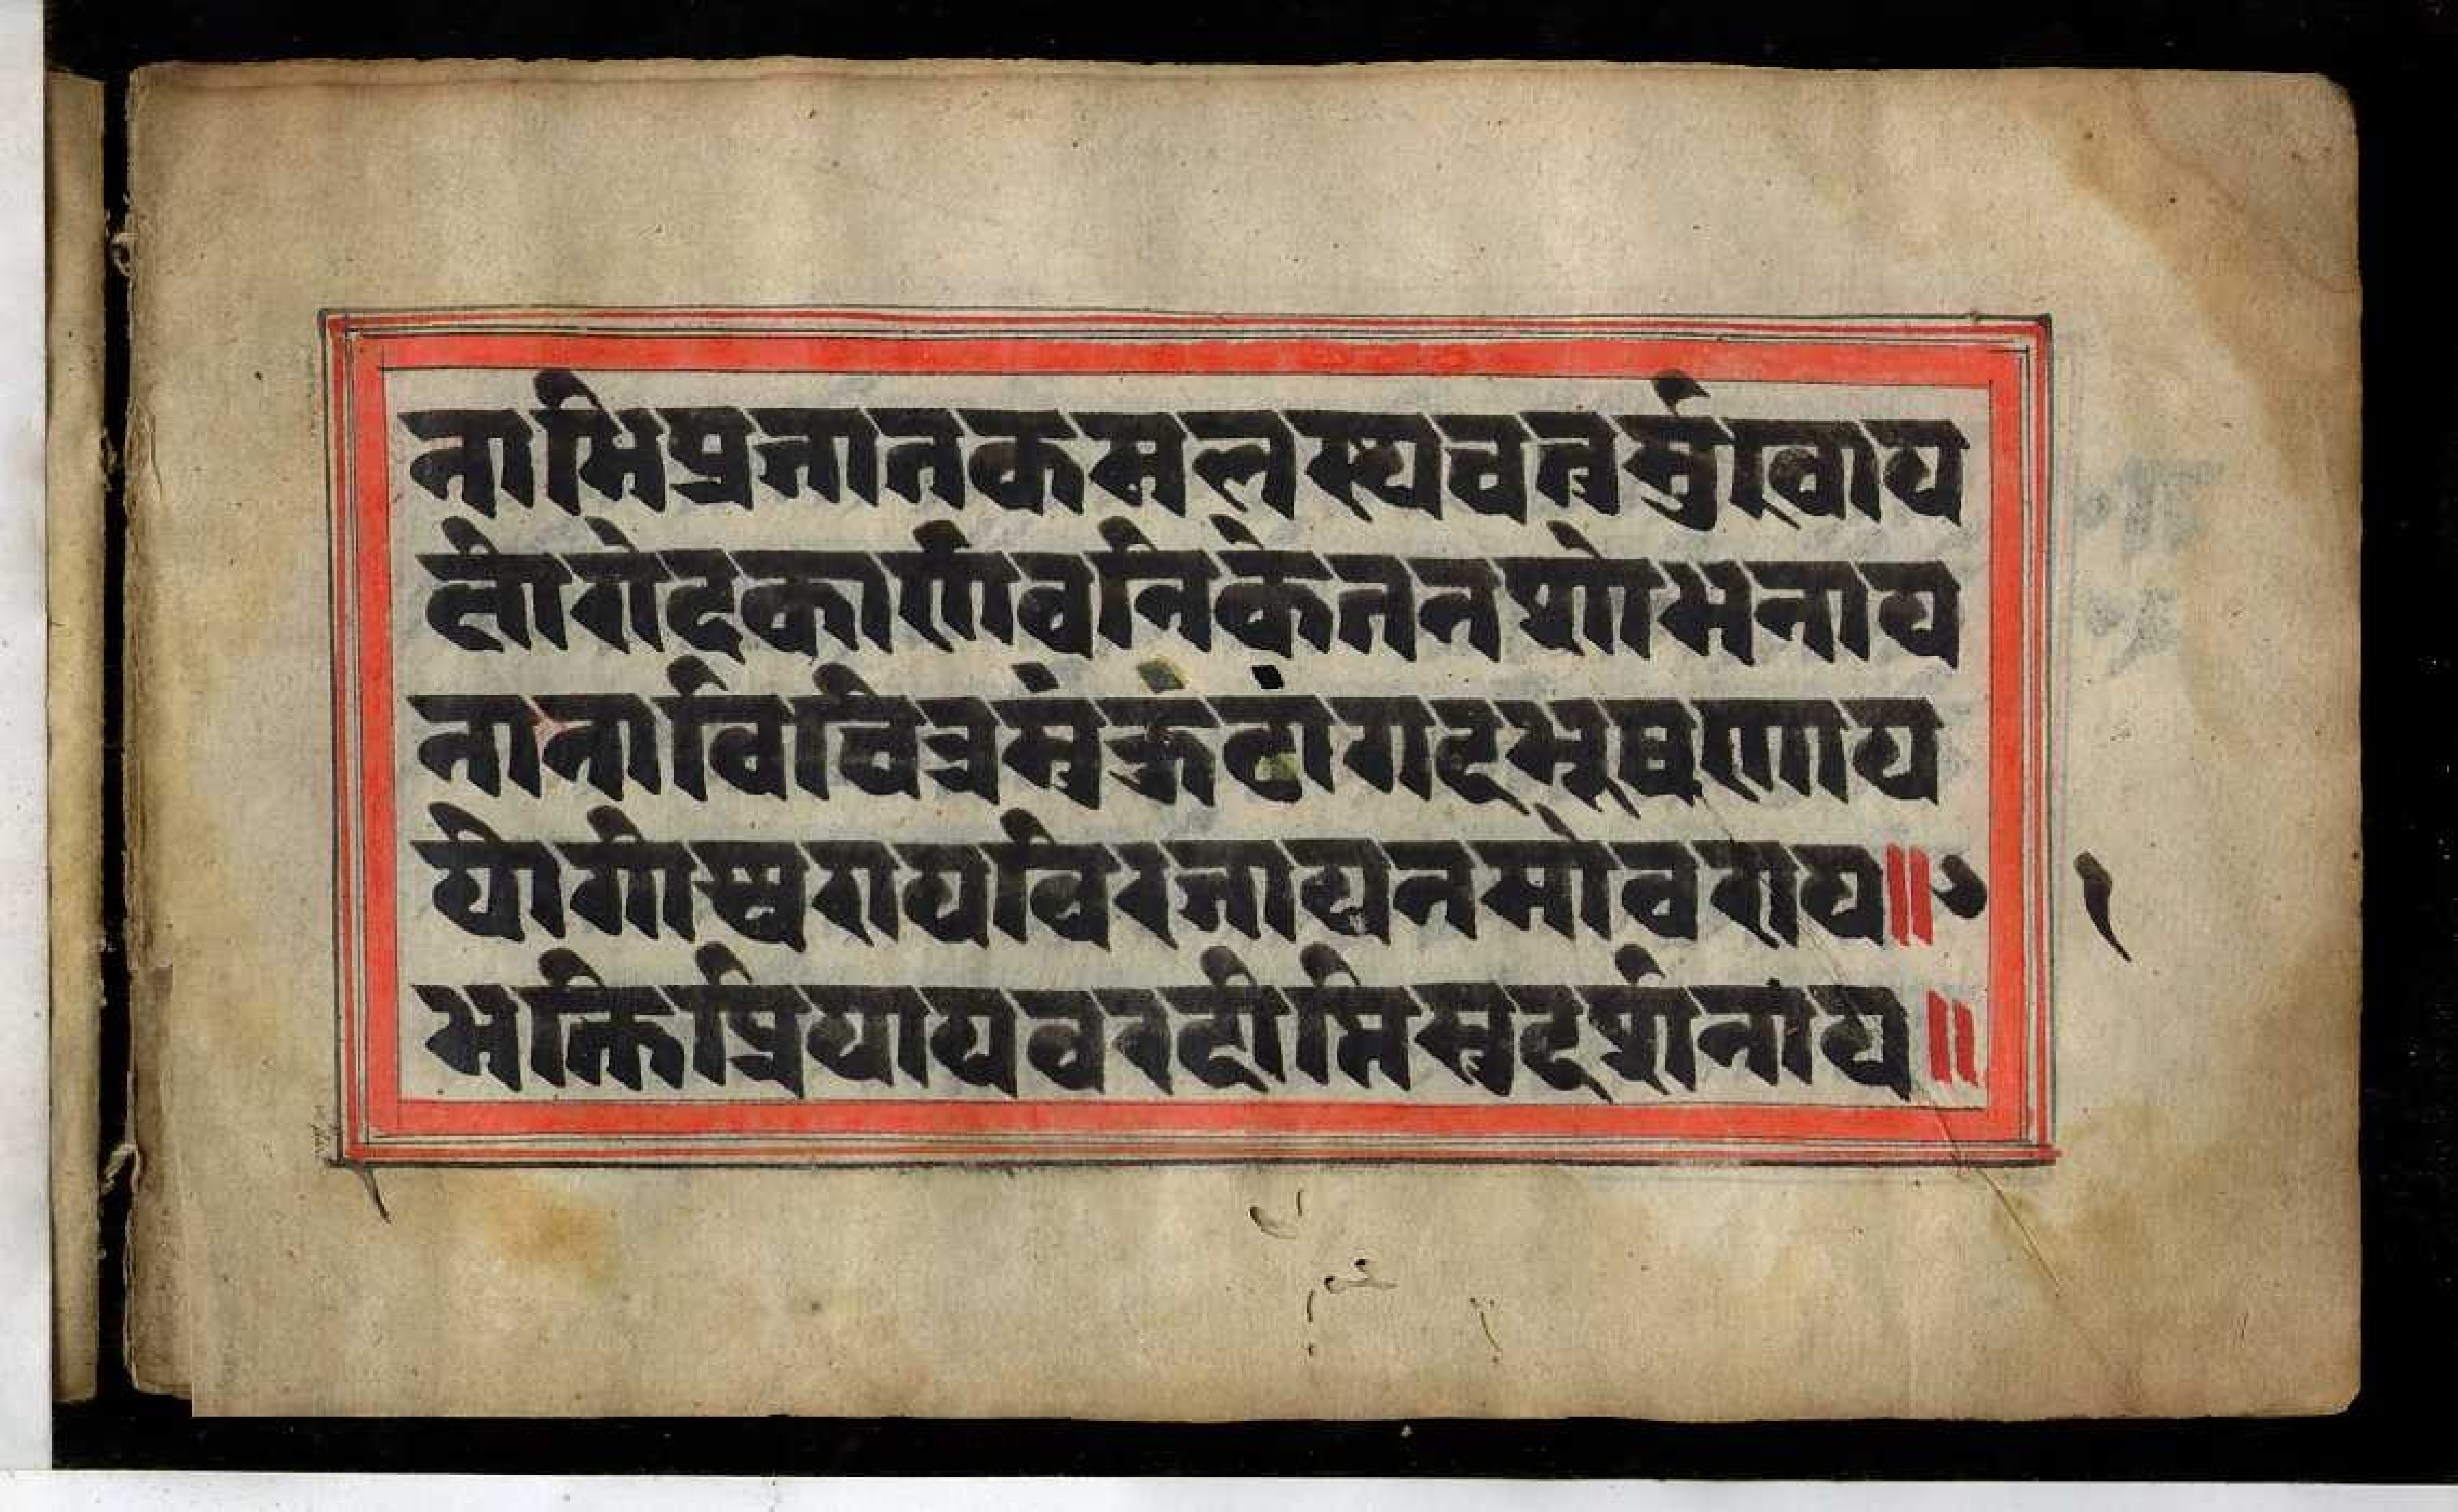 नाभिप्रजातकमलस्थचतुर्मुखाय
क्षीरोदकार्णवनिकेतनशोभनाय
नानाविचित्रमुकुटांगदभूषणाय
योगीश्वरायविरजायनमोवराय॥१
भक्तिप्रियायवरदीप्तिसुदर्शनाय॥
१